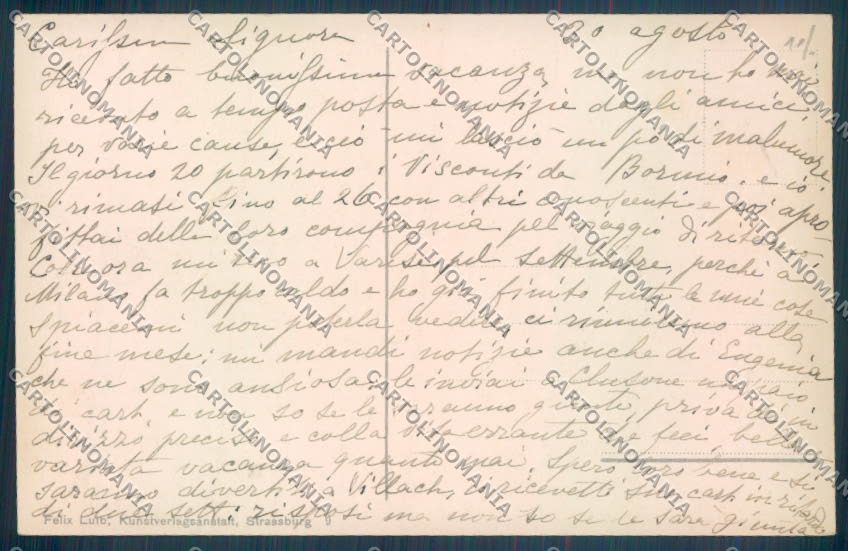 Carissima Signora 30 agosto
Ho fatto buonissima vacanza, ma non ho mai
ricevuto a tempo posta e notizie degli amici
per varie cause, e ciò mi lasciò un po' di malumore
Il giorno 20 partirono i Visconti da Bormio e io
rimasi fino al 26 con altri conoscenti e poi apro-
fittai della loro compagnia pel viaggio di ritorno
ora mi trovo a Varese pel settembre, perchè a
Milano fa troppo caldo e ho già finito tutte le mie cose
Spiacemi non poterla vedere ci rivedremo alla
fine mese; mi mandi notizie anche di Eugenia
che ne sono ansiosa; le inviai a Clusone un paio
di cart. e non so se le saranno giunte, priva di in
dirizzo preciso e colla vita errante che feci, bella
variata vacanza quanto mai. Spero loro bene e si
saranno divertiti a Villach, ricevetti sua cart. in ritardo
di due sett: risposi ma non so se le sarà giunta
Felix Luib, Kunstverlagsanstalt, Strassburg 9
CARTOLINOMANIA